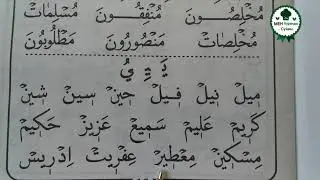 مُخْلِصُونَ مُنْفِقُونَ مُسْلِمَاتٌ
مُخْلِصَاتٌ مَنْصُورُونَ مَطْلُوبُونَ
يَ يِ يُ
مِيلْ نِيلْ فِيلْ حِينْ سِينْ شِينْ
كَرِيمْ عَلِيمْ سَمِيعْ عَزِيزْ حَكِيمْ
مِسْكِينْ مِعْطِيرْ عِفْرِيتْ اِدْرِيسْ